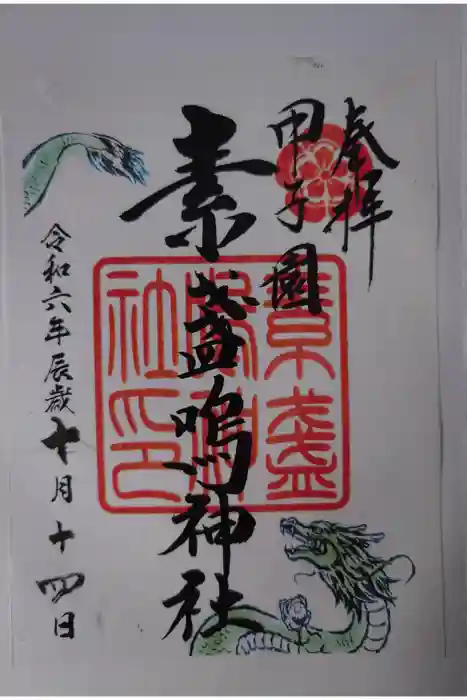 奉拝
甲子園
素盞嗚神社
素盞
嗚神
社印
令和六年辰歳十月十四日